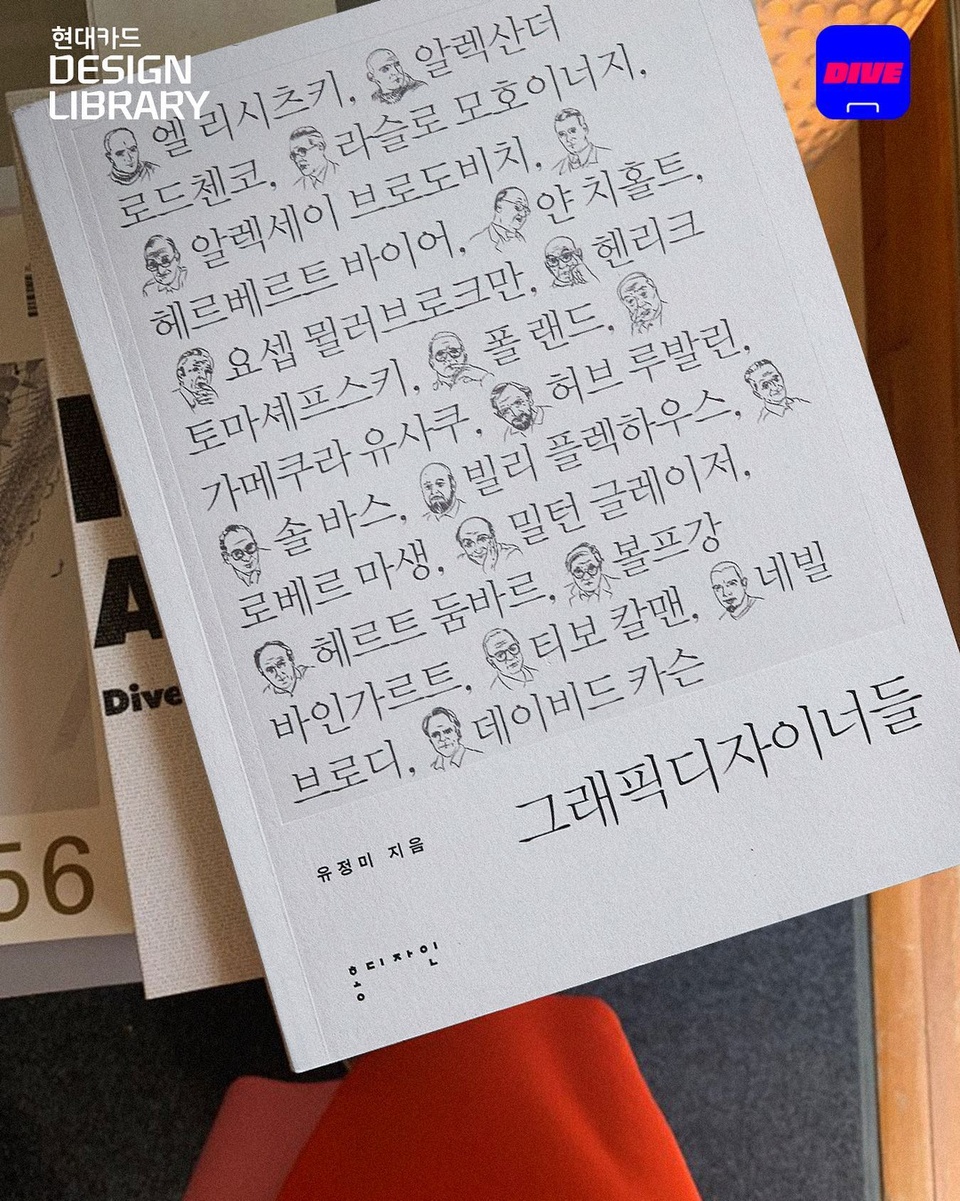 현대카드
DESIGN
LIBRARY
DIVE
엘 리시츠키, 알렉산더
로드첸코, 라슬로 모호이너지,
알렉세이 브로도비치,
헤르베르트 바이어, 얀 치홀트,
요셉 뮐러브로크만, 헨리크
토마세프스키, 폴 랜드,
가메쿠라 유사쿠, 허브 루발린,
솔 바스, 빌리 플렉하우스,
로베르 마생, 밀턴 글레이저,
헤르트 둠바르, 볼프강
바인가르트, 티보 칼맨, 네빌
브로디, 데이비드 카슨
그래픽디자이너들
유정미 지음
홍디자인
A
Dive
56